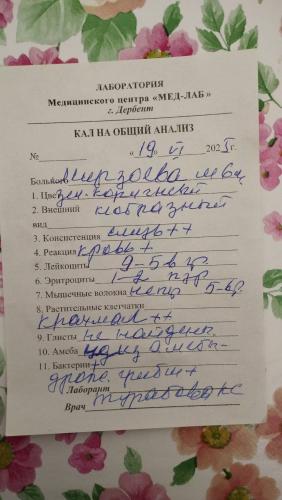 ЛАБОРАТОРИЯ
Медицинского центра «МЕД-ЛАБ»
г. Дербент
КАЛ НА ОБЩИЙ АНАЛИЗ
№ « 19 » VI 2025 г.
Больного Мирзоева
1. Цвет зел-коричневый
2. Внешний вид кобразный
3. Консистенция слизь++
4. Реакция кровь +
5. Лейкоциты 9-5 в
6. Эритроциты
7. Мышечные волокна
8. Растительные клетчатки
крахмал ++
9. Глисты не найдены
10. Амеба
11. Бактерии +
дрож. грибы +
Лаборант
Врач